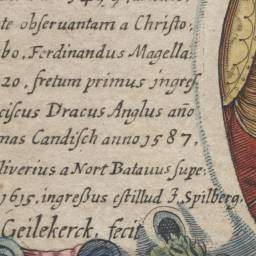 te obseruantam a Christo:
bo, Ferdinandus Magella:
20, fretum primus ingreſ
ciscus Dracus Anglus año
mas Candisch anno 1587,
liverius a Nort Batauus supe:
1615, ingreßus est illud J. Spilberg.
Geilekerck, fecit